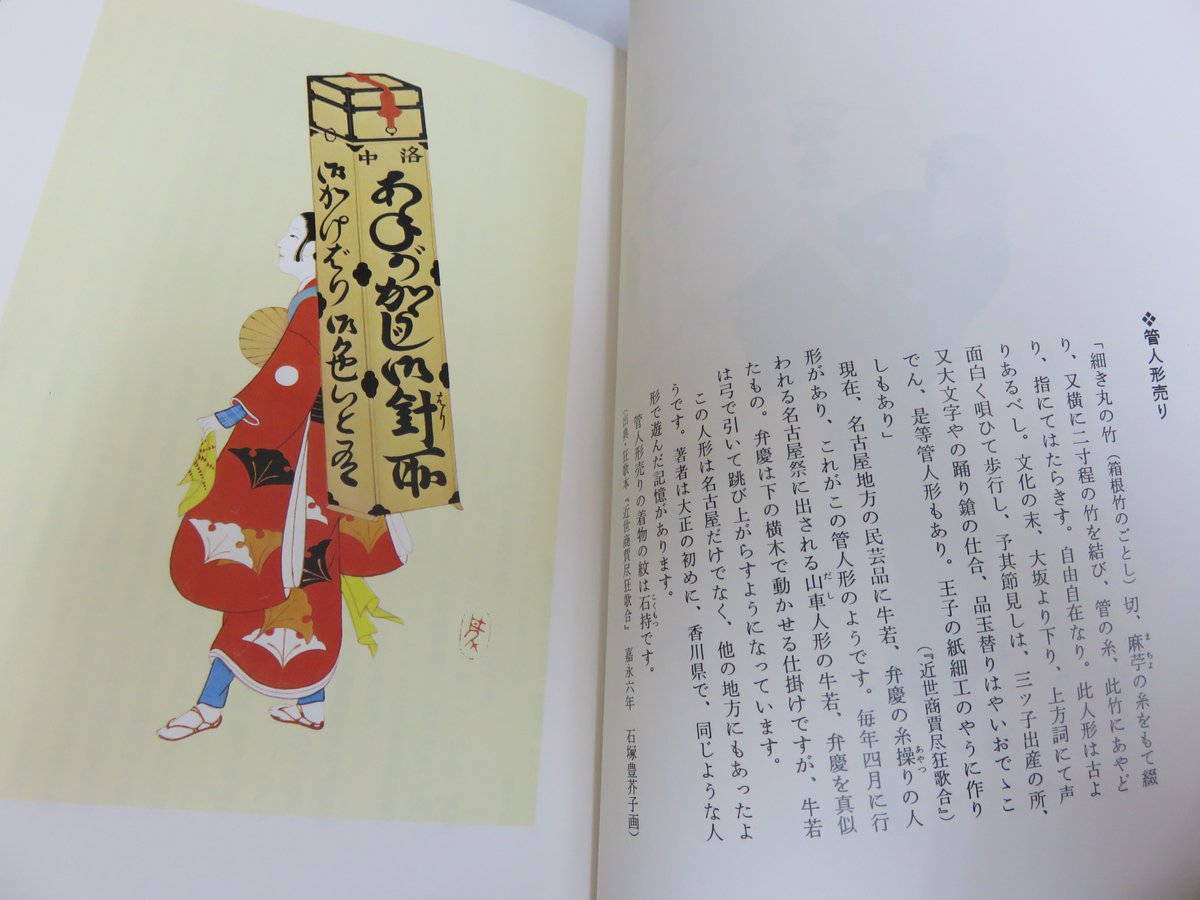 ❖管人形売り
「細き丸の竹(箱根竹のごとし)切、麻苧の糸をもて綴
り、又横に二寸程の竹を結び、管の糸、此竹にあやど
り、指にてはたらきす。自由自在なり。此人形は古よ
りあるべし。文化の末、大坂より下り、上方詞にて声
面白く唄ひて歩行し、予其節見しは、三ッ子出産の所、
又大文字やの踊り鎗の仕合、品玉替りはやいおでゝこ
でん、是等管人形もあり。王子の紙細工のやうに作り
しもあり」
(『近世商賈尽狂歌合』)
現在、名古屋地方の民芸品に牛若、弁慶の糸操りの人
形があり、これがこの管人形のようです。毎年四月に行
われる名古屋祭に出される山車人形の牛若、弁慶を真似
たもの。弁慶は下の横木で動かせる仕掛けですが、牛若
は弓で引いて跳び上がらすようになっています。
この人形は名古屋だけでなく、他の地方にもあったよ
うです。著者は大正の初めに、香川県で、同じような人
形で遊んだ記憶があります。
管人形売りの着物の紋は石持です。
(出典・狂歌本『近世商賈尽狂歌合』 嘉永六年 石塚豊芥子画)
洛中
あねがかうじ御針所
御かけばり 御色いと